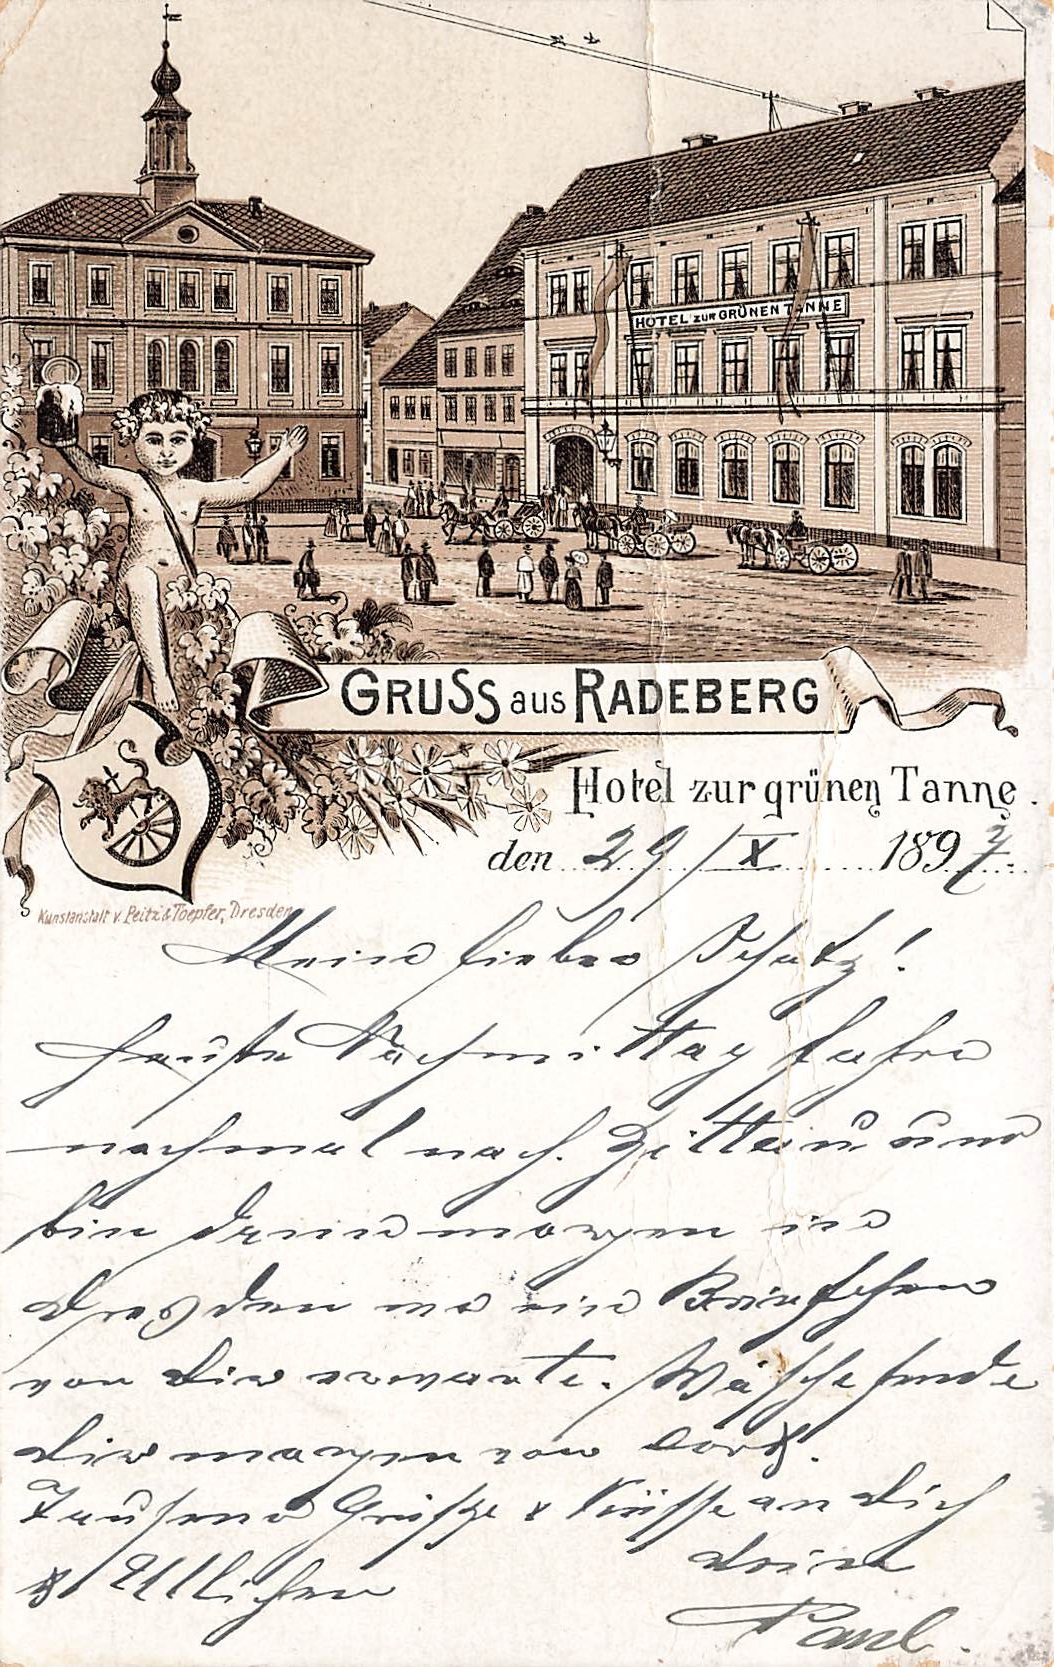 HOTEL ZUR GRÜNEN TANNE
GRUSS aus RADEBERG
Hotel zur grünen Tanne.
den 29/X 1897.
Kunstanstalt v. Peitz & Toepfer, Dresden
Mein lieber Schatz!
Heute Nachmittag fahre
nochmal nach Zittau und
bin dann morgen in
Dresden wo ein Briefchen
von Dir erwarte. Wäsche sende
Dir morgen von dort.
Tausend Grüße & Küsse an Dich
& Ullichen Dein
Paul.